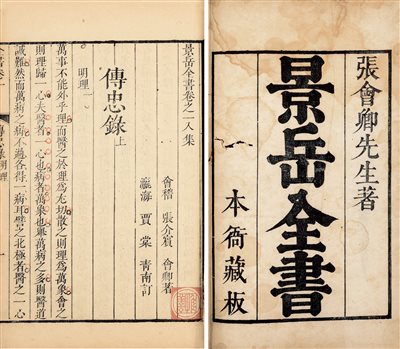 張會卿先生著
景岳全書
本衙藏板
景岳全書卷之一入集
會稽 張介賓 會卿著
瀛海 賈棠 青南訂
傳忠錄上
明理一
萬事不能外乎理而醫之於理為尤切散之則理為萬象會之
則理歸一心夫醫者一心也病者萬象也舉萬病之多則醫道
誠難然而萬病之病不過各得一病耳譬之北極者醫之一心
全書卷一
傳忠錄 明理
一